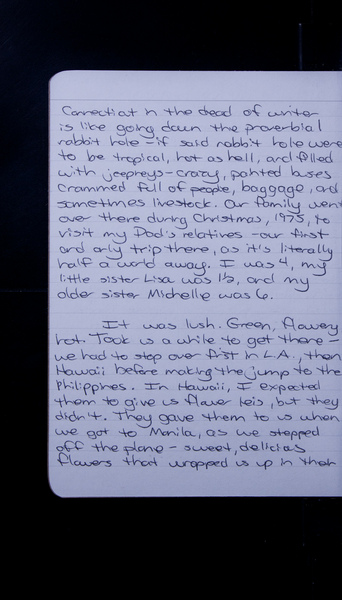 Connecticut in the dead of winter
is like going down the proverbial
rabbit hole - if said rabbit hole were
to be tropical, hot as hell, and filled
with jeepneys - crazy, painted buses
crammed full of people, baggage, and
sometimes livestock. Our family went
over there during Christmas, 1975, to
visit my Dad's relatives - our first
and only trip there, as it's literally
half a world away. I was 4, my
little sister Lisa was 1½, and my
older sister Michelle was 6.
It was lush. Green, flowery
hot. Took us a while to get there -
we had to stop over first in L.A., then
Hawaii before making the jump to the
Philippines. In Hawaii, I expected
them to give us flower leis, but they
didn't. They gave them to us when
we got to Manila, as we stepped
off the plane - sweet, delicious
flowers that wrapped us up in their